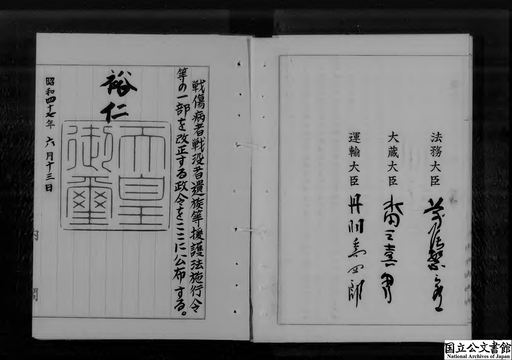 法務大臣 前尾繁三郎
大蔵大臣 水田三喜男
運輸大臣 丹羽喬四郎
戦傷病者戦没者遺族等援護法施行令
等の一部を改正する政令をここに公布する。
裕仁
天皇
御璽
昭和四十七年 六月十三日
内閣
国立公文書館
National Archives of Japan